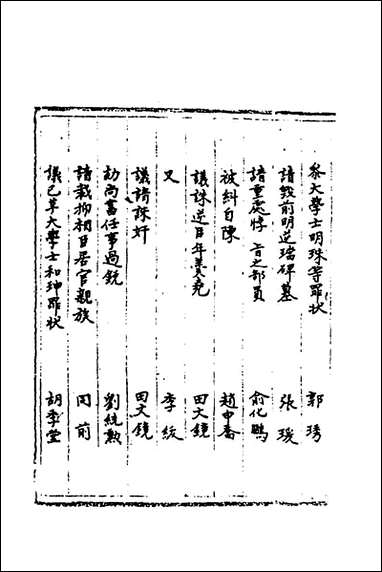 參大學士明珠等罪狀 郭琇
請毀前明逆璫碑墓 張瑗
請重處悖旨之部員 俞化鵬
被糾自陳 趙申喬
議誅逆臣年羹堯 田文鏡
又 李紱
議請誅奸 田文鏡
劾尚書任事過銳 劉統勲
請裁抑相臣居官親族 同前
議已革大學士和珅罪狀 胡季堂